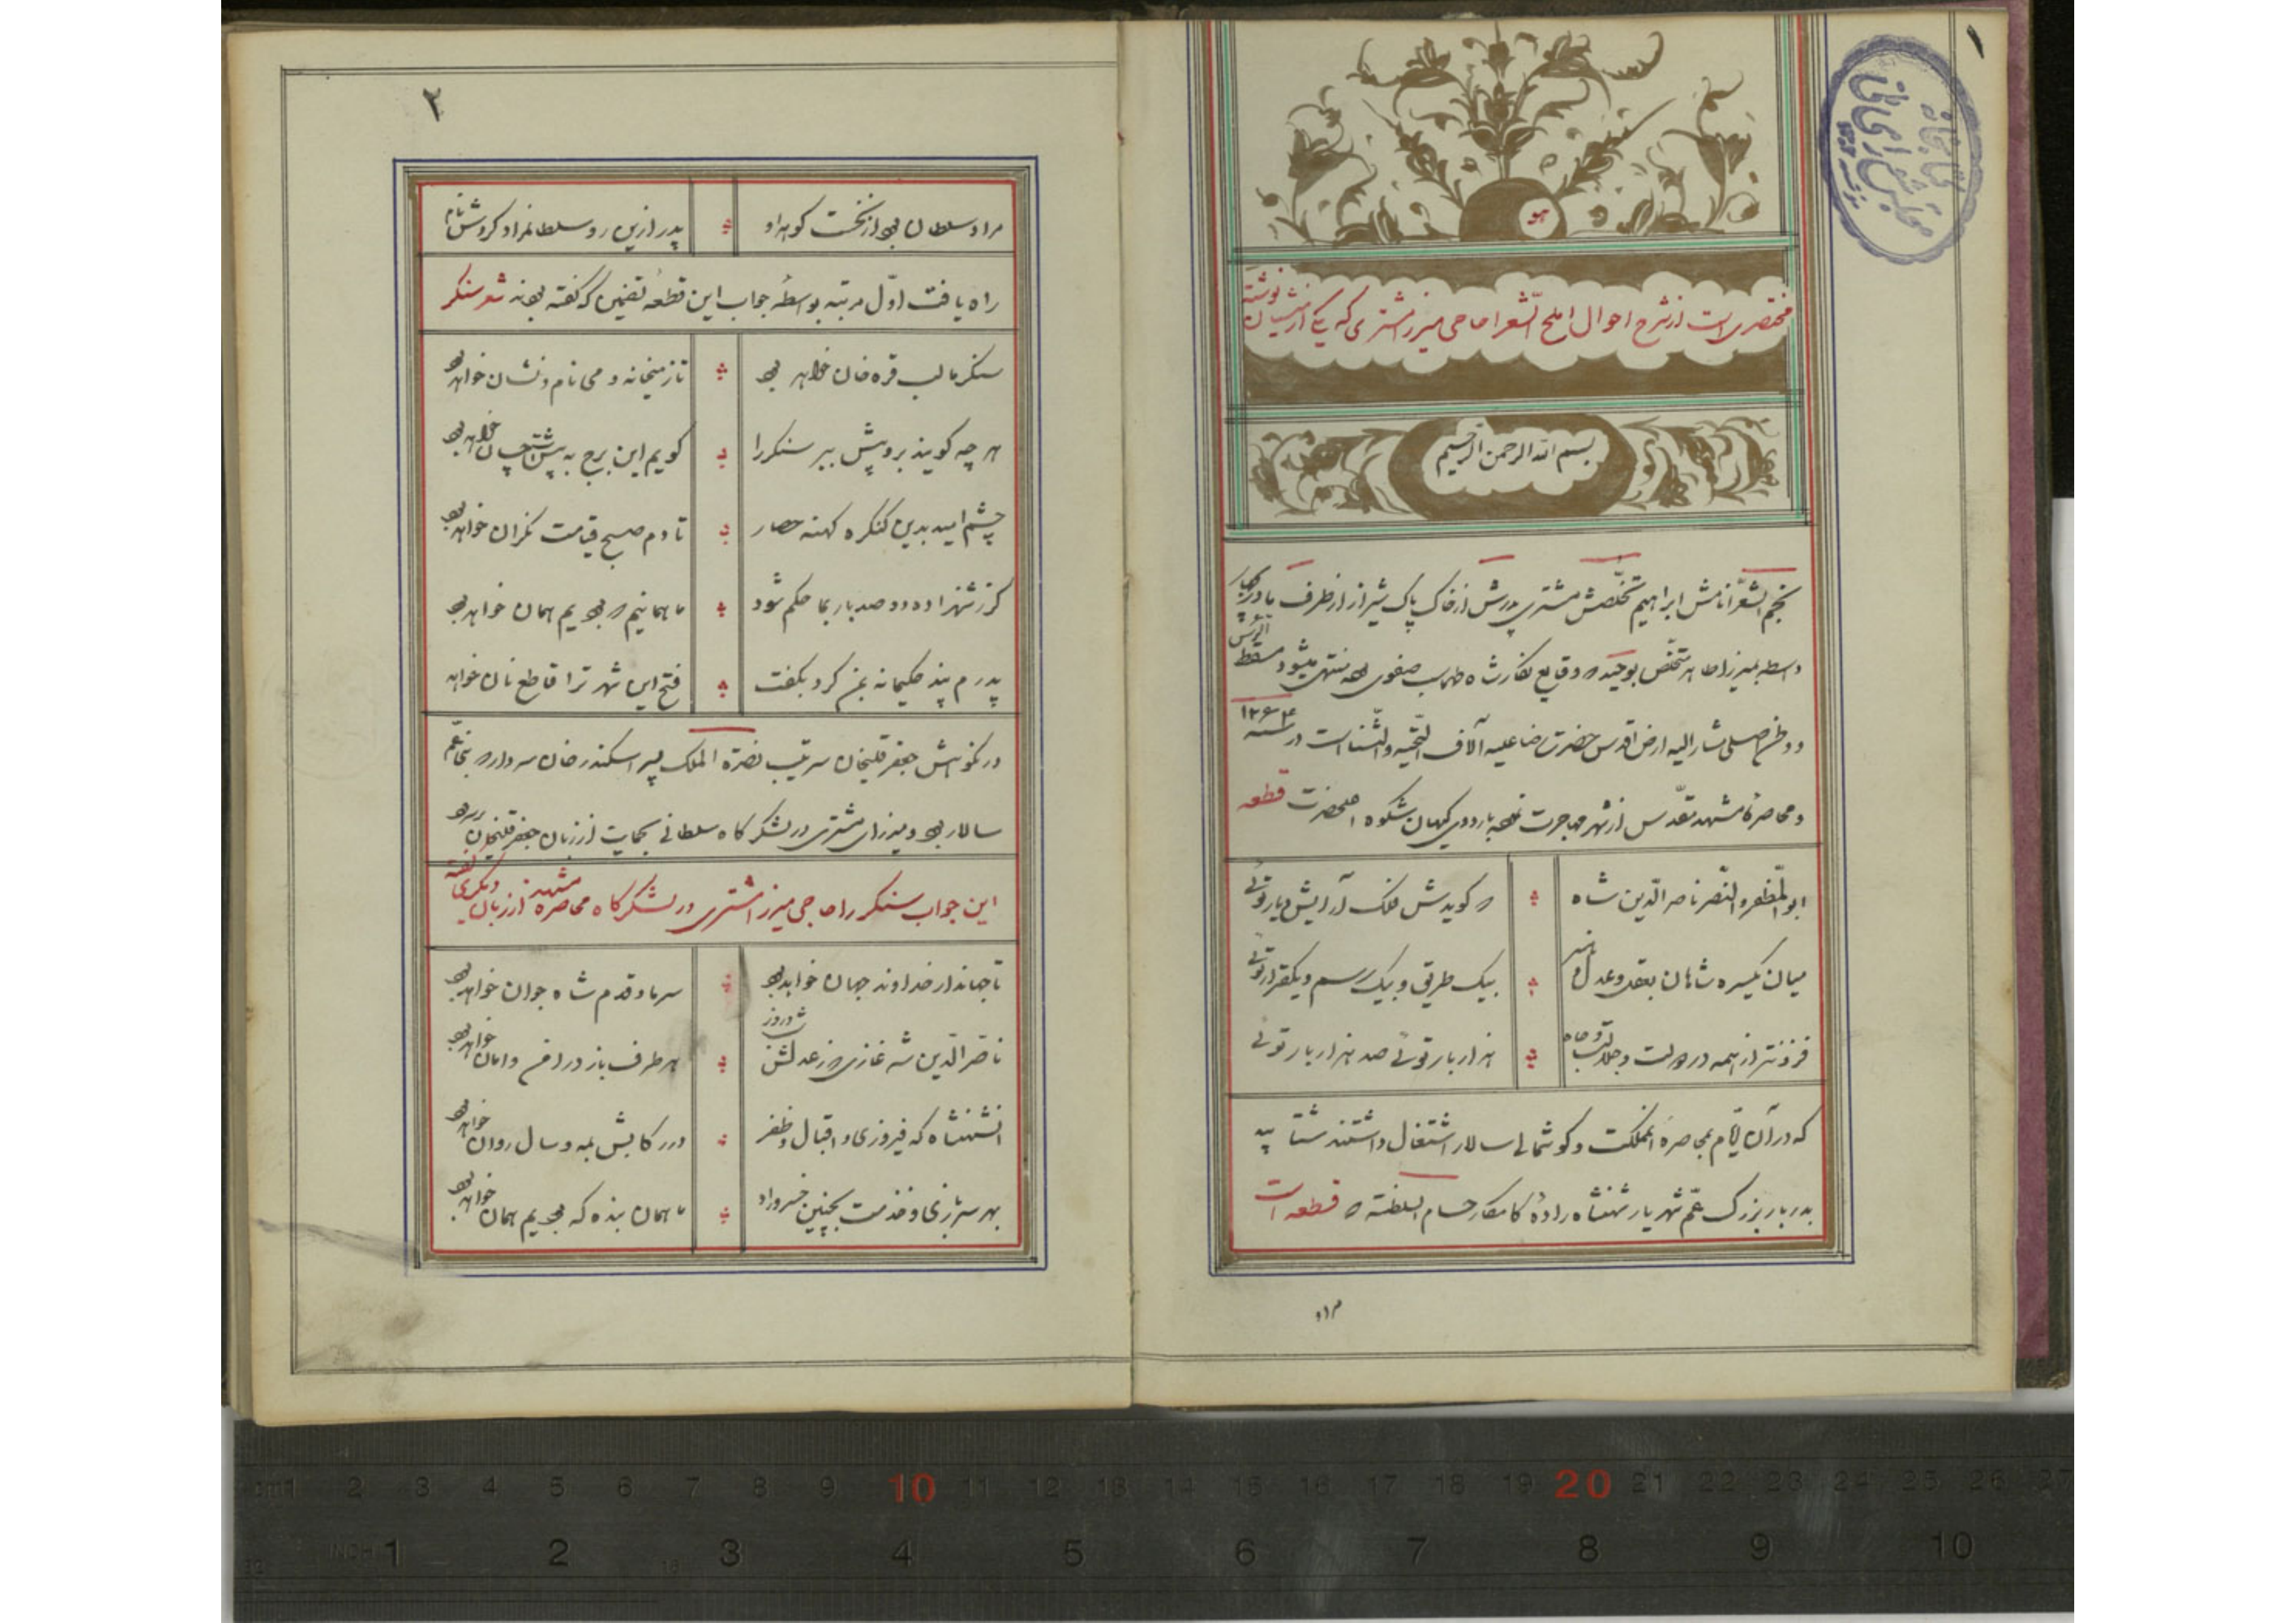 ۱
هو
مختصری است از شرح احوال املح الشعرا حاجی میرزا مشتری که یکی از منشیان نوشته
بسم الله الرحمن الرحیم
نجم الشعرا نامش ابراهیم تخلصش مشتری پدرش از خاک پاک شیراز از طرف مادر
واسطه بمیرزا طاهر متخلص بوحید که وقایع نگار شاه طهماسب صفوی بوده منتهی میشود مسقط الرأس
و وطن اصلی مشار الیه ارض اقدس حضرت رضا علیه آلاف التحیه والثناست در سنه ۱۲۶۴
و محاصرهٔ مشهد مقدس از شهر مهاجرت نموده باردوی کیهان شکوه اعلیحضرت قطعه
ابوالمظفر والنصر ناصر الدین شاه که گویدش فلک آرایش دیار توئی
میان یکسره شاهان بعقل و عدل و هنر بیک طریق و بیک رسم و یکقرار توئی
فزونتر از همه در دولت و جلالت و جاه هزار بار توئی صد هزار بار توئی
که در آن ایام بمحاصرهٔ المملکت و گوشمالی سالار اشتغال داشتند شتابید
بدربار بزرگ عم شهریار شهنشاه زادهٔ کامکار حسام السلطنه که قطعه است
مراد
۲
مراد سلطان بود از نخست گوهر او پدر ازین رو سلطانمراد کردش نام
راه یافت اول مرتبه بواسطهٔ جواب این قطعه تضمین که گفته بودند شعر سنگر
سنگر ما لب قره خان خواهد بود تا ز میخانه و می نام و نشان خواهد بود
هر چه گویند برو پیش ببر سنگر را گویم این برج به پیش
چشم امید بدین کنگره کهنه حصار تا دم صبح قیامت نگران خواهد بود
گر ز شهزاده دو صد بار بما حکم شود ما همانیم که بودیم همان خواهد بود
پدرم پند حکیمانه بمن کرد بگفت فتح این شهر ترا قاطع نان خواهد
در نکوهش جعفر قلیخان سرتیپ نصرة الملک پسر اسکندر خان سردار که بنی عم
سالار بود و میرزای مشتری در لشکرگاه سلطانی بحمایت از زبان جعفر قلیخان
این جواب سنگر را حاجی میرزا مشتری در لشکرگاه محاصره مشهد از زبان دیگری گفته
تا جهاندار خداوند جهان خواهد بود سر ما و قدم شاه جوان خواهد بود
ناصر الدین شه غازی که ز عدلش شب و روز هر طرف باز در امن و امان خواهد بود
آنشهنشاه که فیروزی و اقبال و ظفر در رکابش بمه و سال روان خواهد بود
بهر سربازی و خدمت بچنین خسرو راد ما همان بنده که بودیم همان خواهد بود